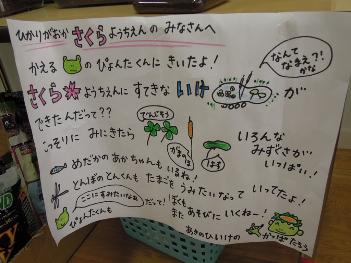 ひかりがおか さくら ようちえんの みなさんへ
かえる の ぴょんたくんに きいたよ!
なんて なまえ?! かな
さくら ようちえんに すてきな いけ が
できたんだって??
てんぐそう
がまのほ
はす
こっそりに みにきたら
いろんな みずくさが いっぱい!
めだかの あかちゃんも いるね!
とんぼの とんくんも たまごを うみたいなって いってたよ!
ぴょんたくんも ここにすみたいなぁ だって! ぼくも
また あそびに いくねー!
あきのひいけの かっぱたろう